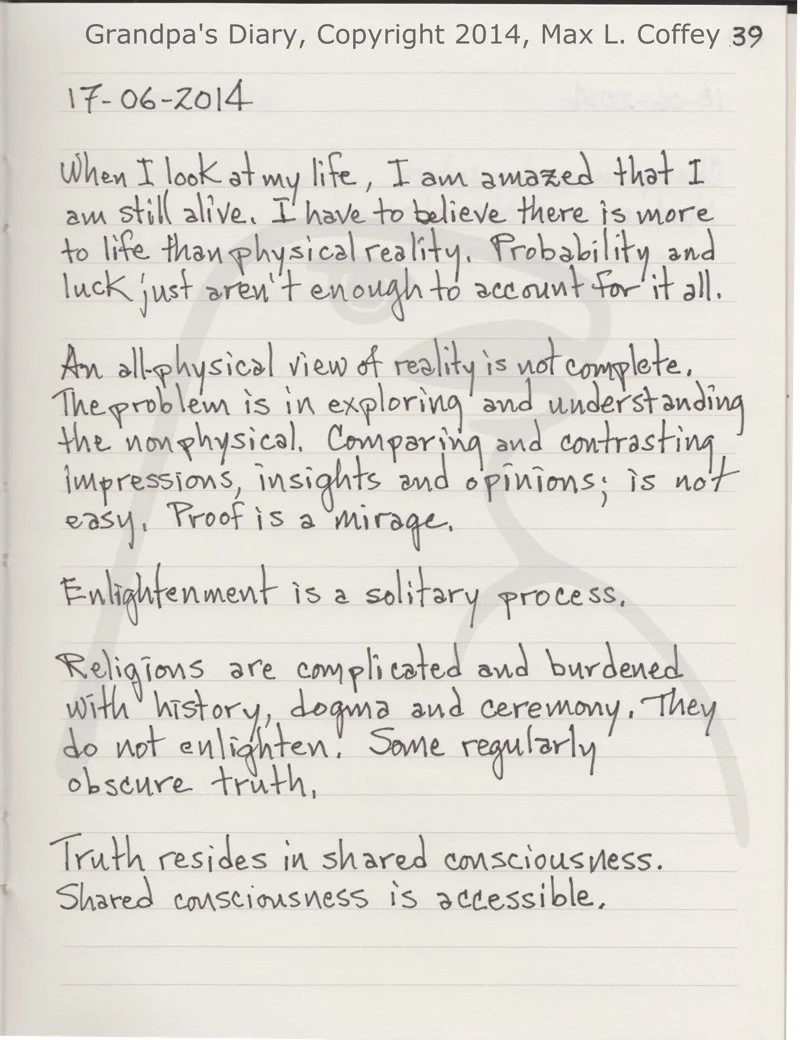 Grandpa's Diary, Copyright 2014, Max L. Coffey 39
17-06-2014
When I look at my life, I am amazed that I
am still alive. I have to believe there is more
to life than physical reality. Probability and
luck just aren't enough to account for it all.
An all-physical view of reality is not complete.
The problem is in exploring and understanding
the nonphysical. Comparing and contrasting
impressions, insights and opinions; is not
easy. Proof is a mirage.
Enlightenment is a solitary process.
Religions are complicated and burdened
with history, dogma and ceremony. They
do not enlighten. Some regularly
obscure truth.
Truth resides in shared consciousness.
Shared consciousness is accessible.